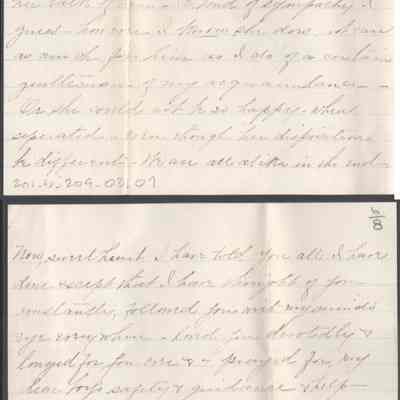 we both of one kind of sympathy I
guess - however I know she does not care
as much for him as I do of a certain
gentleman of my acquaintance -
Or she could not be so happy when
separated - even though her disposition
be different. We are all alike in the end -
201.w.209.02.07
6/8
Now, sweetheart I have told you all I have
done except that I have thought of you
constantly, followed you with my mind's
eye everywhere - loved you devotedly &
longed for you ever & prayed for my
dear boy's safety & guidance & help -